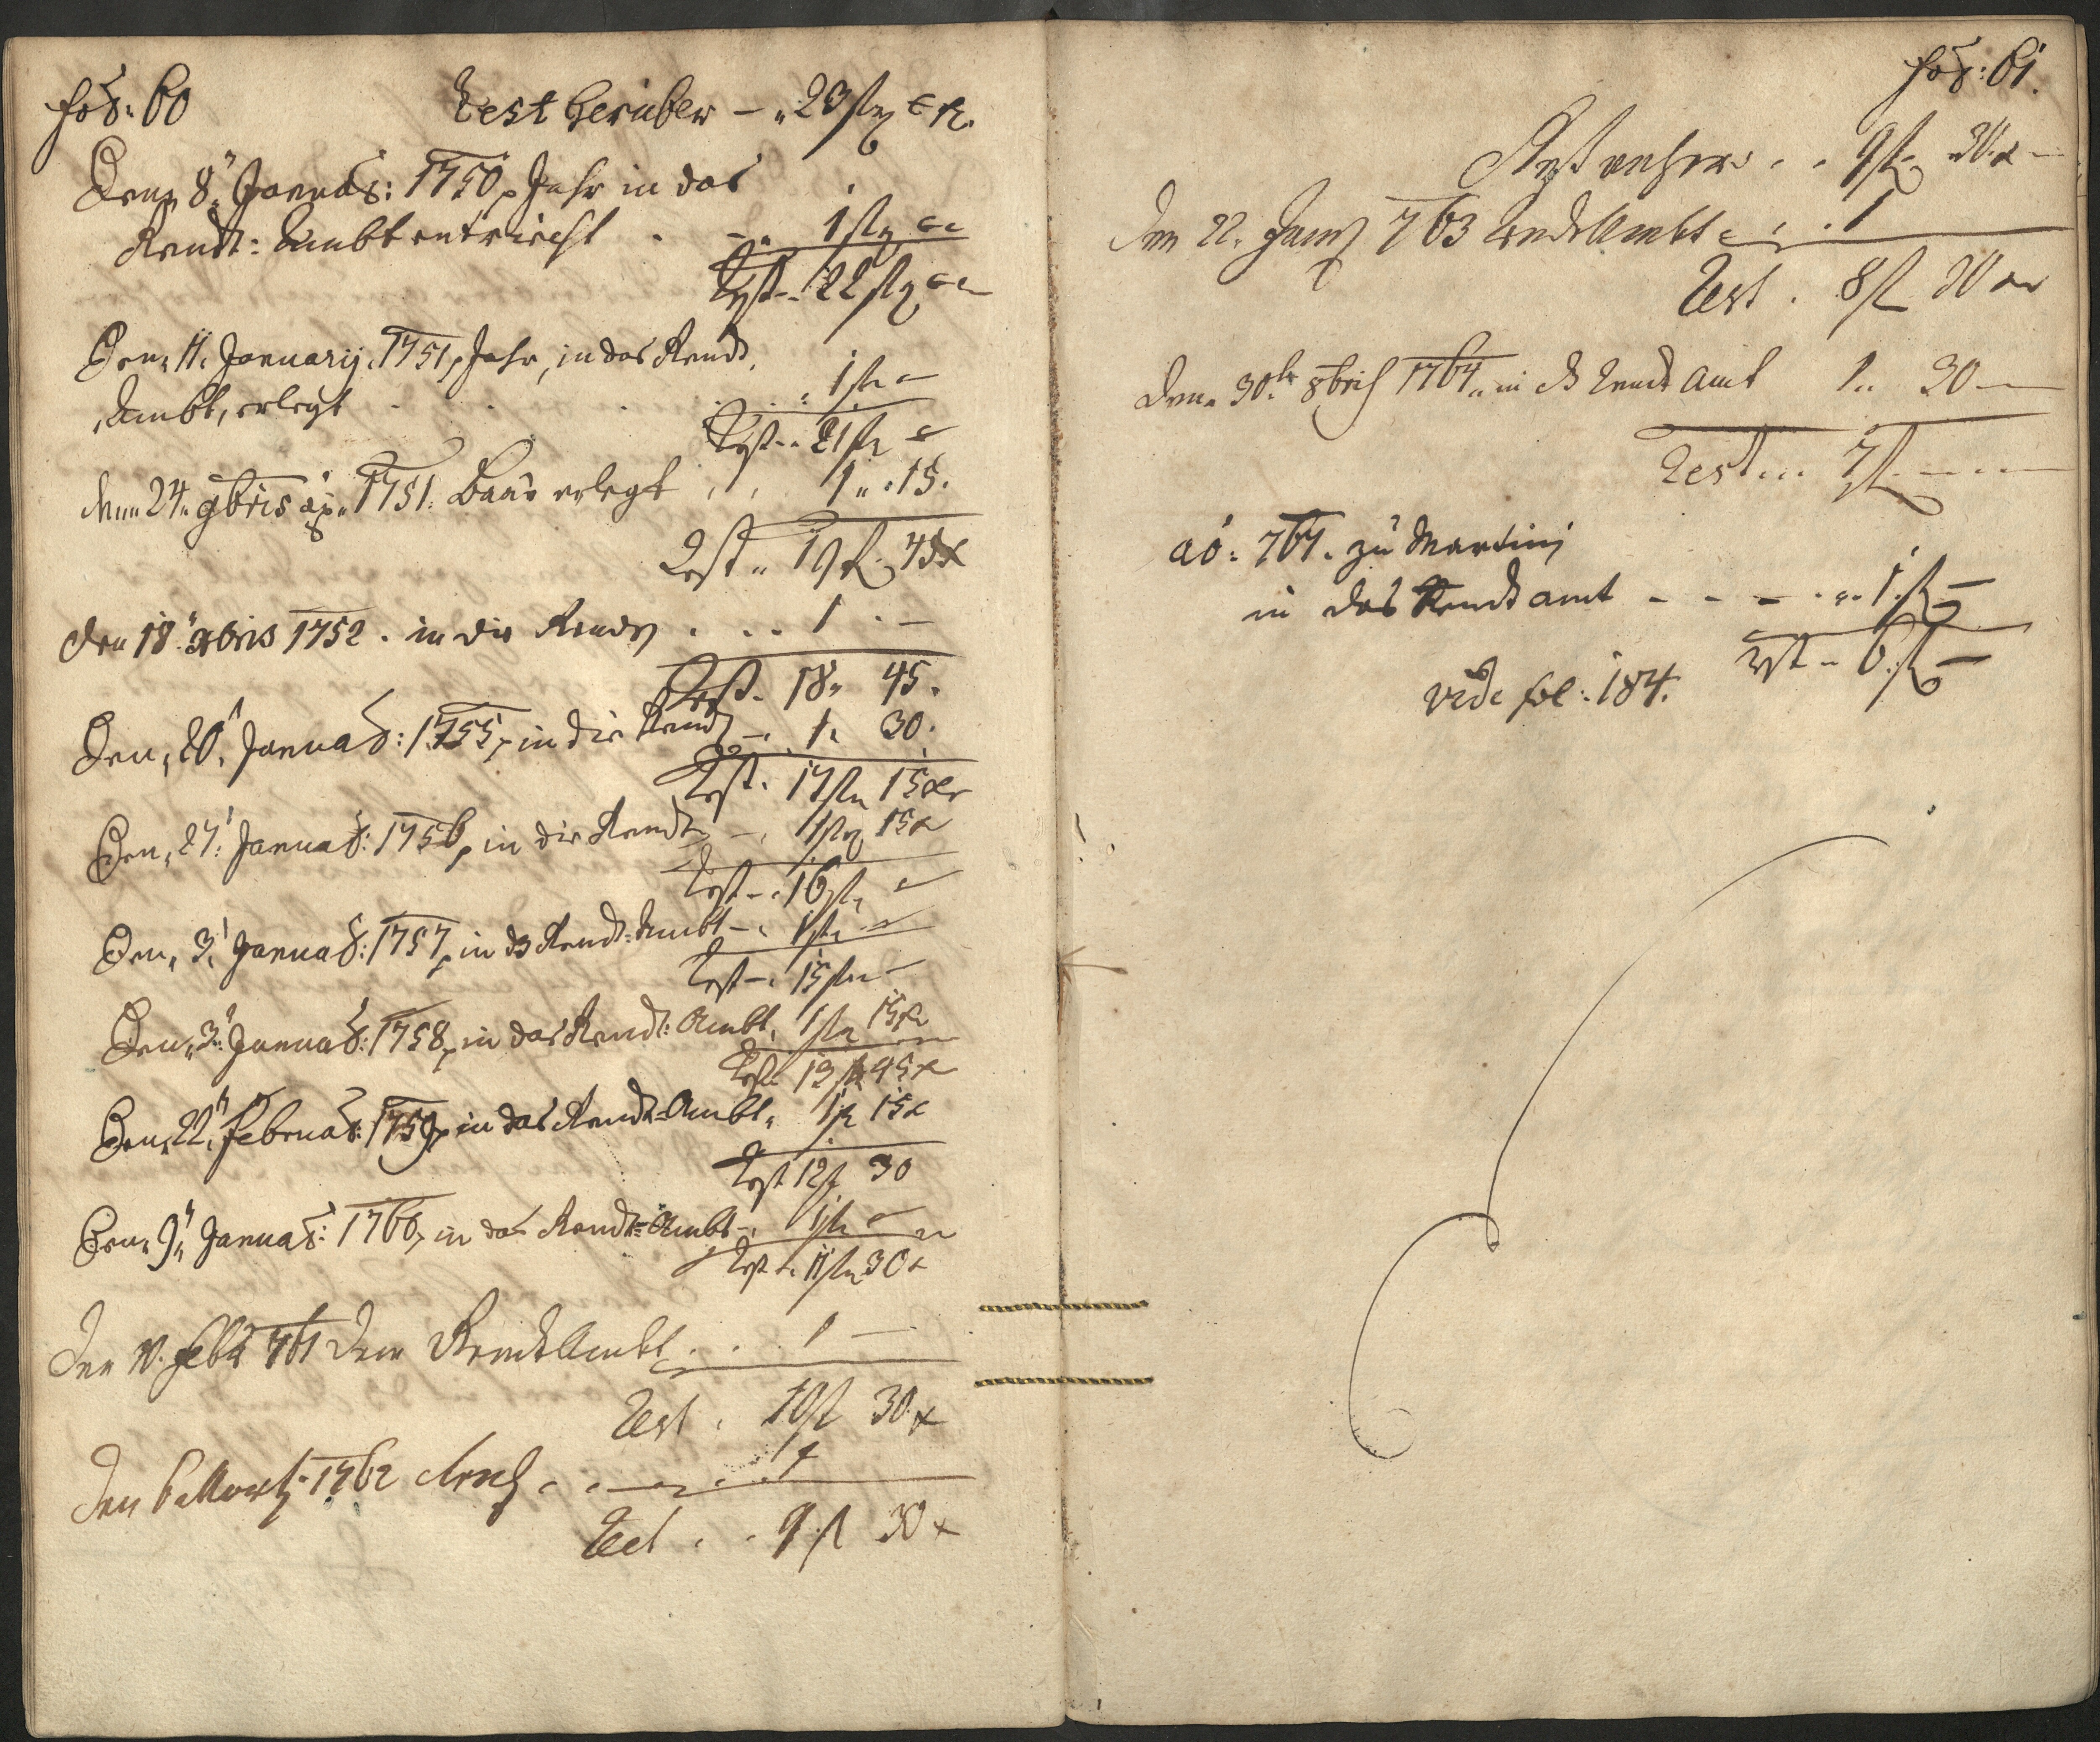 fol: 60
Rest herüber – „ 23 fl
Den 8" Januar: 1750 Jahr in das
Rendt: Ambt entricht . – „ 1 fl
Rest – 22 fl
Den 11. Januarij 1751 Jahr, in das Rendt
Ambt, erlegt . . . . 1 fl –
Rest – 21 fl –
den 24 9bris 1751. Baar erlegt . . 1 „ 15.
Rest „ 19 fl 45 x
Den 18" xbris 1752. in die Rendt . . . 1 . –
Rest. 18 „ 45.
Den 20. Januar: 1755, in die Rendt – 1. 30.
Rest. 17 fl 15 xr
Den 27. Januar: 1756, in die Rendt – 1 fl 15 x
Rest – 16 fl –
Den 3. Januar: 1757, in das Rendt: Ambt – 1 fl –
Rest – 15 fl –
Den 3" Januar: 1758, in das Rendt: Ambt, 1 fl 15 x
Rest 13 fl 45 x
Den 22" Februar: 1759, in das Rendt: Ambt, 1 fl 15 x
Rest 12 fl 30
Den 9" Januar: 1760, in das Rendt: Ambt – 1 fl –
Rest – 11 fl 30 x
Den 10. Feb 761 dem Rendt Ambt . . 1 –
Rest . 10 fl 30 x
Den 6 Martz 1762 . . 1
Rest . . 9 fl 30 x
fol: 61.
Rest . . 9 fl 30 x –
Den 22. 763 Rendt Ambt . . 1
Rest . 8 fl 30 xr
Den 30 8bris 1764 in das Rendt Amt 1 „ 30 –
Rest . . . 7 fl – – –
ao: 767. zu Martinj
in das Rendt amt – – – . „ 1. fl –
Rest – 6. fl –
vide fol: 184.